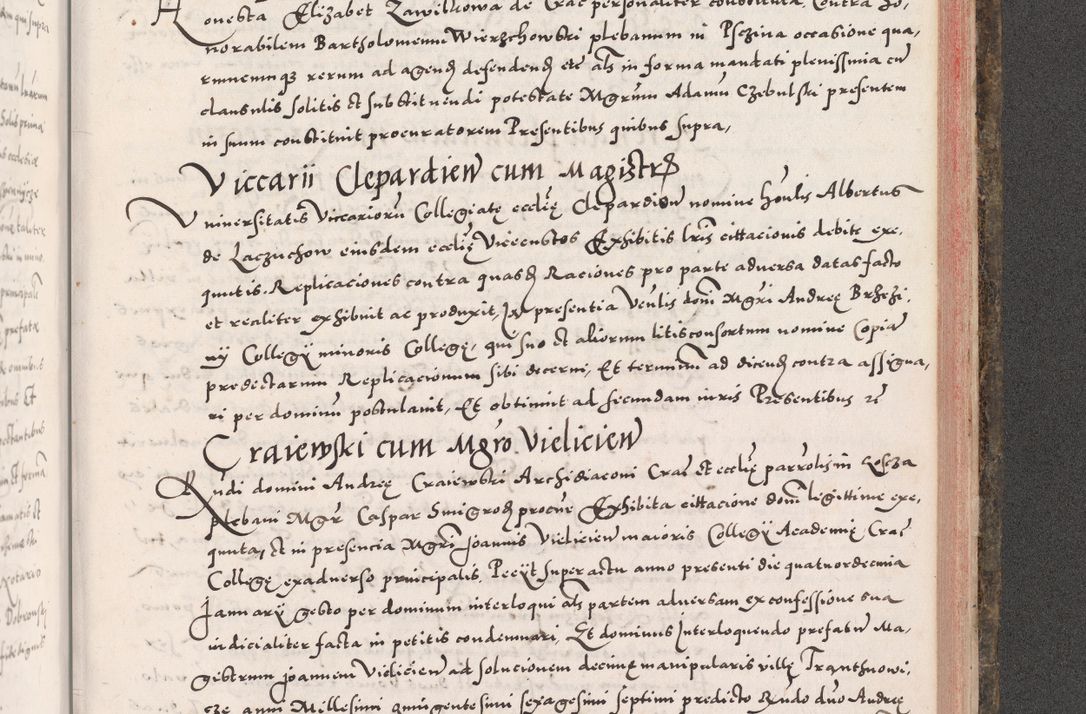 Honesta Elizabet Zawilkowa de Crac personaliter constituta Contra Ho,
norabilem Bartholomeum Wierzchowski plebanum in Pszina occasione qua,
rumcumqz rerum ad agend defendend etc als in forma mandati plenissima cum
clausulis solitis et substituendi potestate Mgrum Adamu Czebulski presentem
in suum constituit procuratorem Presentibus quibus supra,
Viccarii Clepardien cum Magistro
Universitatis Viccarioru Collegiate ecclie Clepardien nomine Honlis Albertus
de Laczuchow eiusdem ecclie Vicecustos Exhibitis lris cittacionis debite exe,
quutis. Replicaciones contra quasd Raciones pro parte adversa datas facto
et realiter exhibuit ac produxit, In presentia Venlis dom Mgri Andree Brzezi,
ny Collegy minoris College, qui suo et aliorum litisconsortum nomine Copia
predictarum Replicacionum sibi decerni, Et terminum ad dicend contra assigna,
ri per dominu postulavit, Et obtinuit ad secundam iuris Presentibus
Craiewski cum Mgro Vielicien
Rndi domini Andree Craiewski Archidiaconi Crac et ecclie parrolis in
plebani Mgr Caspar Smigrod procur Exhibita cittacione dom legittime exe,
quuta, et in presencia Mgri Joannis Vielicien maioris Collegy Academie Crac
College exadverso principalis. Peeyt super actu anno presenti die quatuordecima
January gesto per dominum interloqui als partem adversam ex confessione sua
iudicialiter facta in petitis condemnari, Et dominus Interloquendo prefatu Ma,
gistrum Joannem Vielicien ad solucionem decime manipularis ville Tranthnowi,
cze anni Millesimi quingentesimi sexagesimi septimi predicto Rndo dno Andree